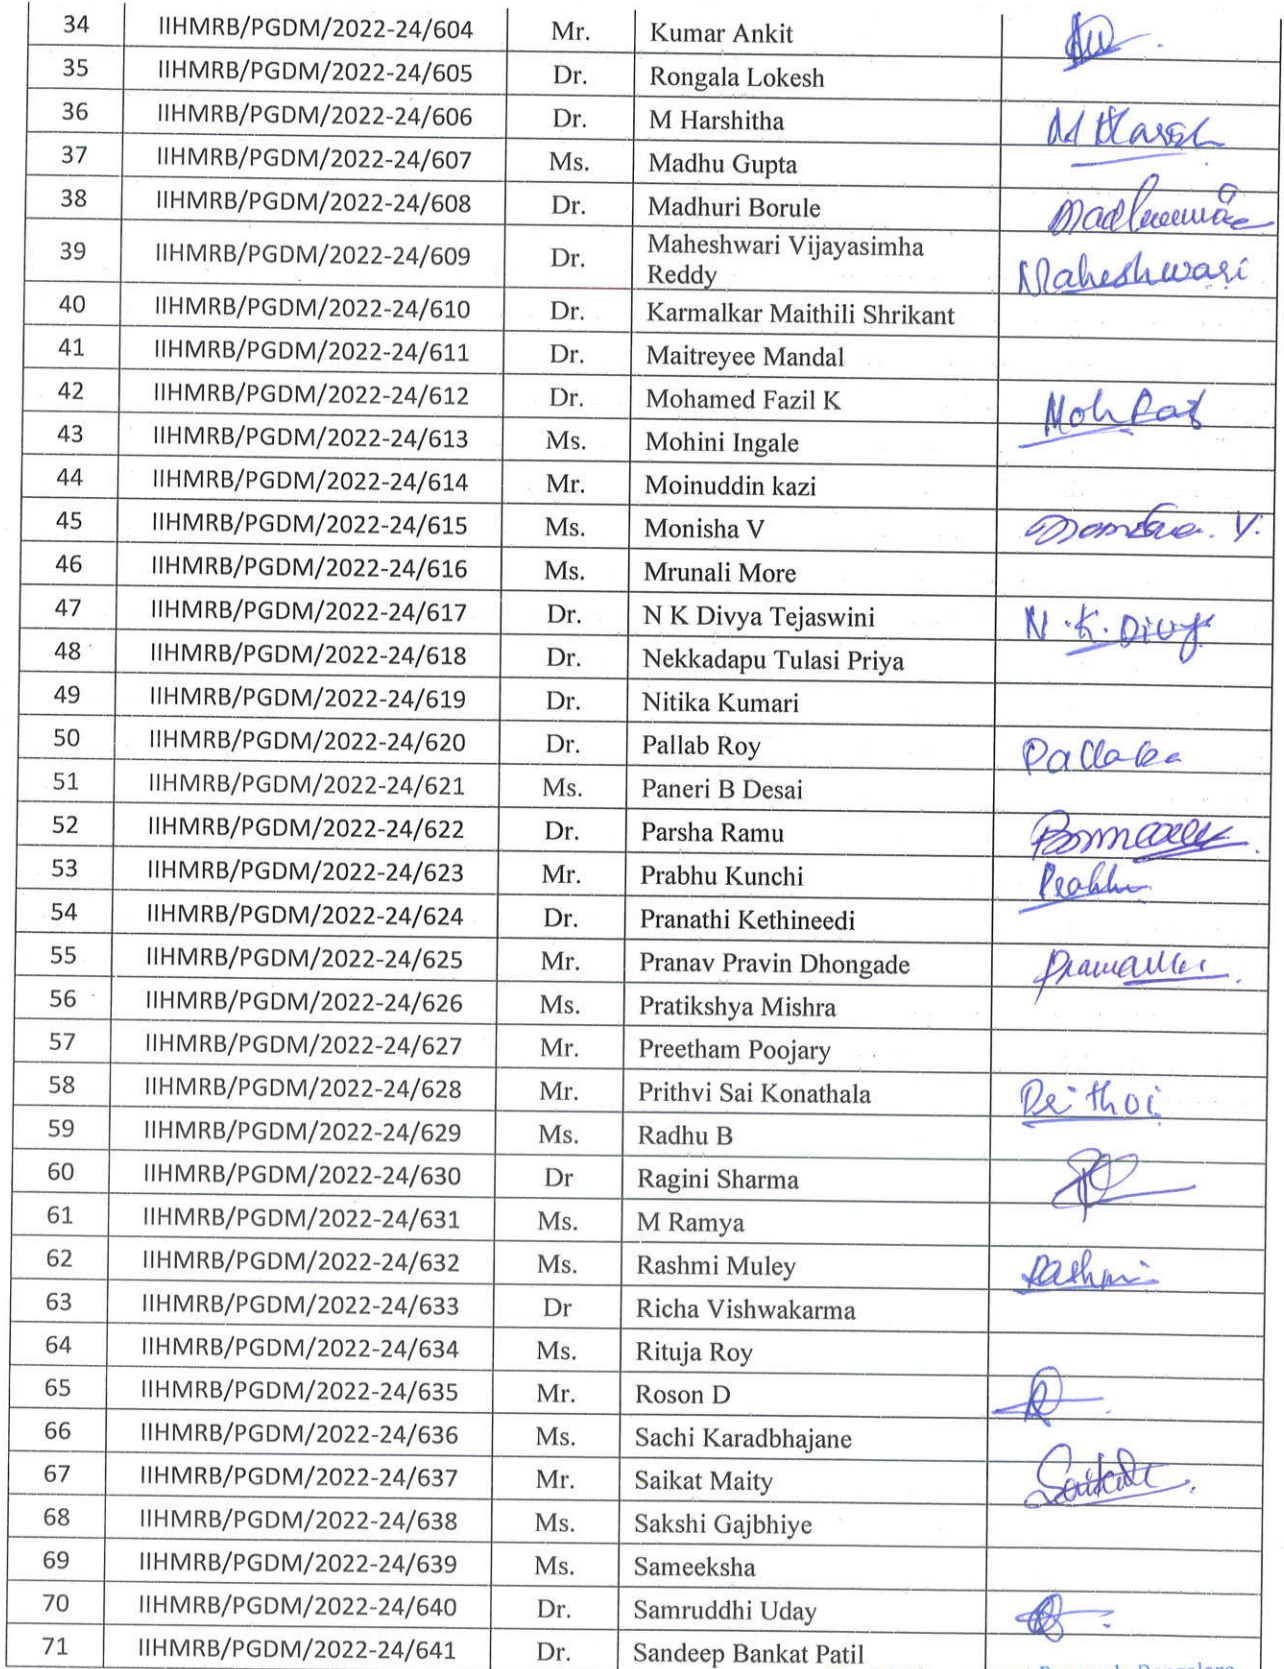 34 IIHMRB/PGDM/2022-24/604 Mr. Kumar Ankit
35 IIHMRB/PGDM/2022-24/605 Dr. Rongala Lokesh
36 IIHMRB/PGDM/2022-24/606 Dr. M Harshitha
37 IIHMRB/PGDM/2022-24/607 Ms. Madhu Gupta
38 IIHMRB/PGDM/2022-24/608 Dr. Madhuri Borule
39 IIHMRB/PGDM/2022-24/609 Dr. Maheshwari Vijayasimha Maheshwari
Reddy
40 IIHMRB/PGDM/2022-24/610 Dr. Karmalkar Maithili Shrikant
41 IIHMRB/PGDM/2022-24/611 Dr. Maitreyee Mandal
42 IIHMRB/PGDM/2022-24/612 Dr. Mohamed Fazil K
43 IIHMRB/PGDM/2022-24/613 Ms. Mohini Ingale
44 IIHMRB/PGDM/2022-24/614 Mr. Moinuddin kazi
45 IIHMRB/PGDM/2022-24/615 Ms. Monisha V
46 IIHMRB/PGDM/2022-24/616 Ms. Mrunali More
47 IIHMRB/PGDM/2022-24/617 Dr. N K Divya Tejaswini N.K.Divy
48 IIHMRB/PGDM/2022-24/618 Dr. Nekkadapu Tulasi Priya
49 IIHMRB/PGDM/2022-24/619 Dr. Nitika Kumari
50 IIHMRB/PGDM/2022-24/620 Dr. Pallab Roy
51 IIHMRB/PGDM/2022-24/621 Ms. Paneri B Desai
52 IIHMRB/PGDM/2022-24/622 Dr. Parsha Ramu
53 IIHMRB/PGDM/2022-24/623 Mr. Prabhu Kunchi Prabhu
54 IIHMRB/PGDM/2022-24/624 Dr. Pranathi Kethineedi
55 IIHMRB/PGDM/2022-24/625 Mr. Pranav Pravin Dhongade
56 IIHMRB/PGDM/2022-24/626 Ms. Pratikshya Mishra
57 IIHMRB/PGDM/2022-24/627 Mr. Preetham Poojary
58 IIHMRB/PGDM/2022-24/628 Mr. Prithvi Sai Konathala
59 IIHMRB/PGDM/2022-24/629 Ms. Radhu B
60 IIHMRB/PGDM/2022-24/630 Dr Ragini Sharma
61 IIHMRB/PGDM/2022-24/631 Ms. M Ramya
62 IIHMRB/PGDM/2022-24/632 Ms. Rashmi Muley Rashmi
63 IIHMRB/PGDM/2022-24/633 Dr Richa Vishwakarma
64 IIHMRB/PGDM/2022-24/634 Ms. Rituja Roy
65 IIHMRB/PGDM/2022-24/635 Mr. Roson D
66 IIHMRB/PGDM/2022-24/636 Ms. Sachi Karadbhajane
67 IIHMRB/PGDM/2022-24/637 Mr. Saikat Maity Saikat
68 IIHMRB/PGDM/2022-24/638 Ms. Sakshi Gajbhiye
69 IIHMRB/PGDM/2022-24/639 Ms. Sameeksha
70 IIHMRB/PGDM/2022-24/640 Dr. Samruddhi Uday
71 IIHMRB/PGDM/2022-24/641 Dr. Sandeep Bankat Patil